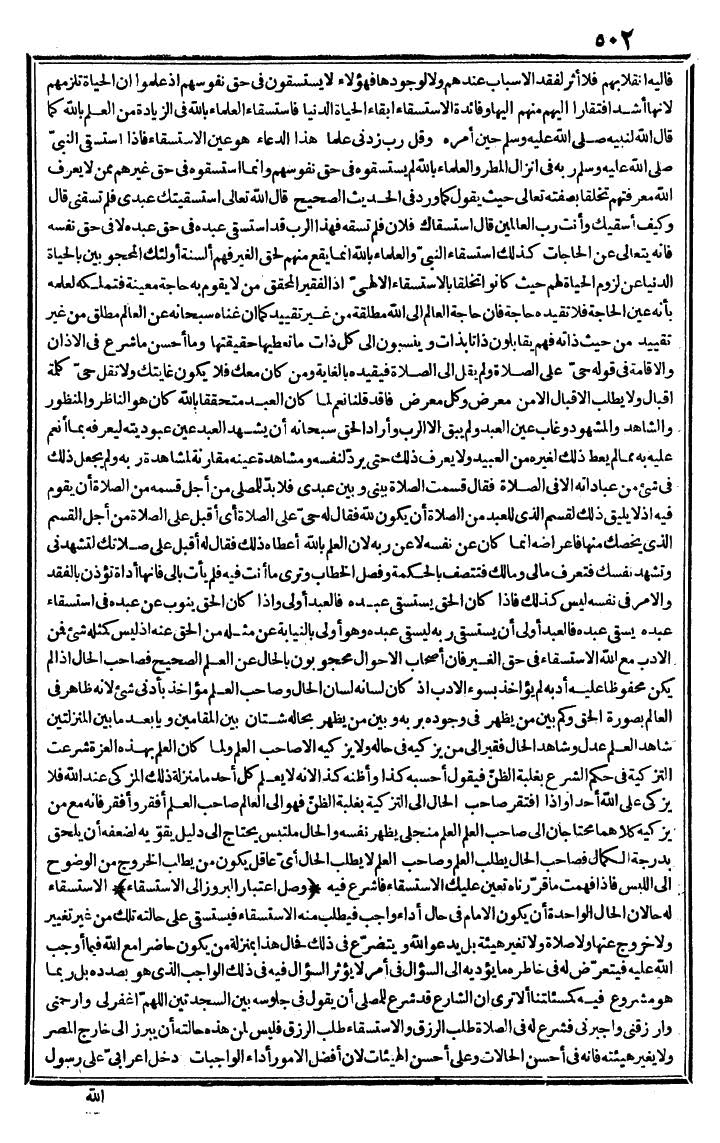 ٥٠٢
فاليه انقلابهم فلا أثر لفقد الاسباب عندهم ولا لوجودها فهؤلاء لا يستسقون فى حق نفوسهم اذ علموا ان الحياة تلزمهم
لانها أشد افتقارا اليهم منهم اليها وفائدة الاستسقاء ابقاء الحياة الدنيا فاستسقاء العلماء بالله فى الزيادة من العلم بالله كما
قال الله لنبيه صلى الله عليه وسلم حين أمره وقل رب زدنى علما هذا الدعاء هو عين الاستسقاء فاذا استسقى النبىّ
صلى الله عليه وسلم ربه فى انزال المطر والعلماء بالله لم يستسقوه فى حق نفوسهم وانما استسقوه فى حق غيرهم ممن لا يعرف
الله معرفتهم تخلقا بصفته تعالى حيث يقول كما ورد فى الحديث الصحيح قال الله تعالى استسقيتك عبدى فلم تسقنى قال
وكيف أسقيك وأنت رب العالمين قال استسقاك فلان فلم تسقه فهذا الرب قد استسقى عبده فى حق عبده لا فى حق نفسه
فانه يتعالى عن الحاجات كذلك استسقاء النبىّ والعلماء بالله انما يقع منهم لحق الغير فهم ألسنة أولئك المحجوبين بالحياة
الدنيا عن لزوم الحياة لهم حيث كانوا تخلقا بالاستسقاء الالهىّ اذ الفقير المحقق من لا يقوم به حاجة معينة فتملكه لعامه
بأنه عين الحاجة فلا تقيده حاجة فان حاجة العالم الى الله مطلقة من غير تقييد كما ان غناه سبحانه عن العالم مطلق من غير
تقييد من حيث ذاته فهم يقابلون ذاتا بذات وينسبون الى كل ذات ما تعطيها حقيقتها وما أحسن ما شرع فى الاذان
والاقامة فى قوله حىّ على الصلاة ولم يقل الى الصلاة فيقيده بالغاية ومن كان معك فلا يكون غايتك ولا تقل حىّ كلمة
اقبال ولا يطلب الاقبال الا من معرض وكل معرض فاقد قلنا نعم لما كان العبد متحققا بالله كان هو الناظر والمنظور
والشاهد والمشهود وغاب عين العبد ولم يبق الا الرب وأراد الحق سبحانه أن يشهد العبد عين عبوديته ليعرفه بما أنعم
عليه به مما لم يعط ذلك لغيره من العبيد ولا يعرف ذلك حتى يردّ لنفسه ومشاهدة عينه مقارنة لمشاهدة ربه ولم يجعل ذلك
فى شئ من عباداته الا فى الصلاة فقال قسمت الصلاة بينى وبين عبدى فلا بدّ للمصلى من أجل قسمه من الصلاة أن يقوم
فيه اذ لا يليق ذلك القسم الذى للعبد من الصلاة أن يكون لله فقال له حىّ على الصلاة أى أقبل على الصلاة من أجل القسم
الذى يخصك منها فاعراضه انما كان عن نفسه لا عن ربه لان العلم بالله أعطاه ذلك فقال له أقبل على صلاتك لتشهدنى
وتشهد نفسك فتعرف مالى ومالك فتتصف بالحكمة وفصل الخطاب وترى ما أنت فيه فلم يأت بالى فانها أداة تؤذن بالفقد
والامر فى نفسه ليس كذلك فاذا كان الحق يستسقى عبده فالعبد أولى واذا كان الحق ينوب عن عبده فى استسقاء
عبده يسقى عبده فالعبد أولى أن يستسقى ربه ليسقى عبده وهو أولى بالنيابة عن مثله من الحق عنه اذ ليس كمثله شئ فمن
الادب مع الله الاستسقاء فى حق الغير فان أصحاب الاحوال محجوبون بالحال عن العلم الصحيح فصاحب الحال اذا لم
يكن محفوظا عليه أدبه لم يؤاخذ بسوء الادب اذ كان لسانه لسان الحال وصاحب العلم مؤاخذ بأدنى شئ لانه ظاهر فى
العالم بصورة الحق وكم بين من يظهر فى وجوده بربه وبين من يظهر بحاله شتان بين المقامين ويا بعد ما بين المنزلتين
شاهد العلم عدل وشاهد الحال فقير الى من يزكيه فى حاله ولا يزكيه الا صاحب العلم ولما كان العلم بهذه العزة شرعت
التزكية فى حكم الشرع بغلبة الظنّ فيقول أحسبه كذا وأظنه كذا لانه لا يعلم كل أحد ما منزلة ذلك المزكى عند الله فلا
يزكى على الله أحدا واذا افتقر صاحب الحال الى التزكية بغلبة الظنّ فهو الى العالم صاحب العلم أفقر وأفقر فانه مع من
يزكيه كلاهما محتاجان الى صاحب العلم العلم منجلى يظهر نفسه والحال ملتبس يحتاج الى دليل يقوّيه لضعفه أن يلحق
بدرجة الكمال فصاحب الحال يطلب العلم وصاحب العلم لا يطلب الحال أىّ عاقل يكون من يطلب الخروج من الوضوح
الى اللبس فاذا فهمت ما قرّرناه تعين عليك الاستسقاء فاشرع فيه ﴿وصل اعتبار البروز الى الاستسقاء﴾ الاستسقاء
له حالان الحال الواحدة أن يكون الامام فى حال أداء واجب فيطلب منه الاستسقاء فيستسقى على حالته تلك من غير تغيير
ولا خروج عنها ولا صلاة ولا تغير هيئة بل يدعو الله ويتضرّع فى ذلك فحال هذا بمنزلة من يكون حاضرا مع الله فيما أوجب
الله عليه فيتعرّض له فى خاطره ما يؤديه الى السؤال فى أمر لا يؤثر السؤال فيه فى ذلك الواجب الذى هو بصدده بل ربما
هو مشروع فيه كمسئلتنا ألا ترى ان الشارع قد شرع للمصلى أن يقول فى جلوسه بين السجدتين اللهمّ اغفر لى وارحمنى
وارزقنى واجبرنى فشرع له فى الصلاة طلب الرزق والاستسقاء طلب الرزق فليس لمن هذه حالته أن يبرز الى خارج المصر
ولا يغير هيئته فانه فى أحسن الحالات وعلى أحسن الهيئات لان أفضل الامور أداء الواجبات دخل اعرابىّ على رسول
الله